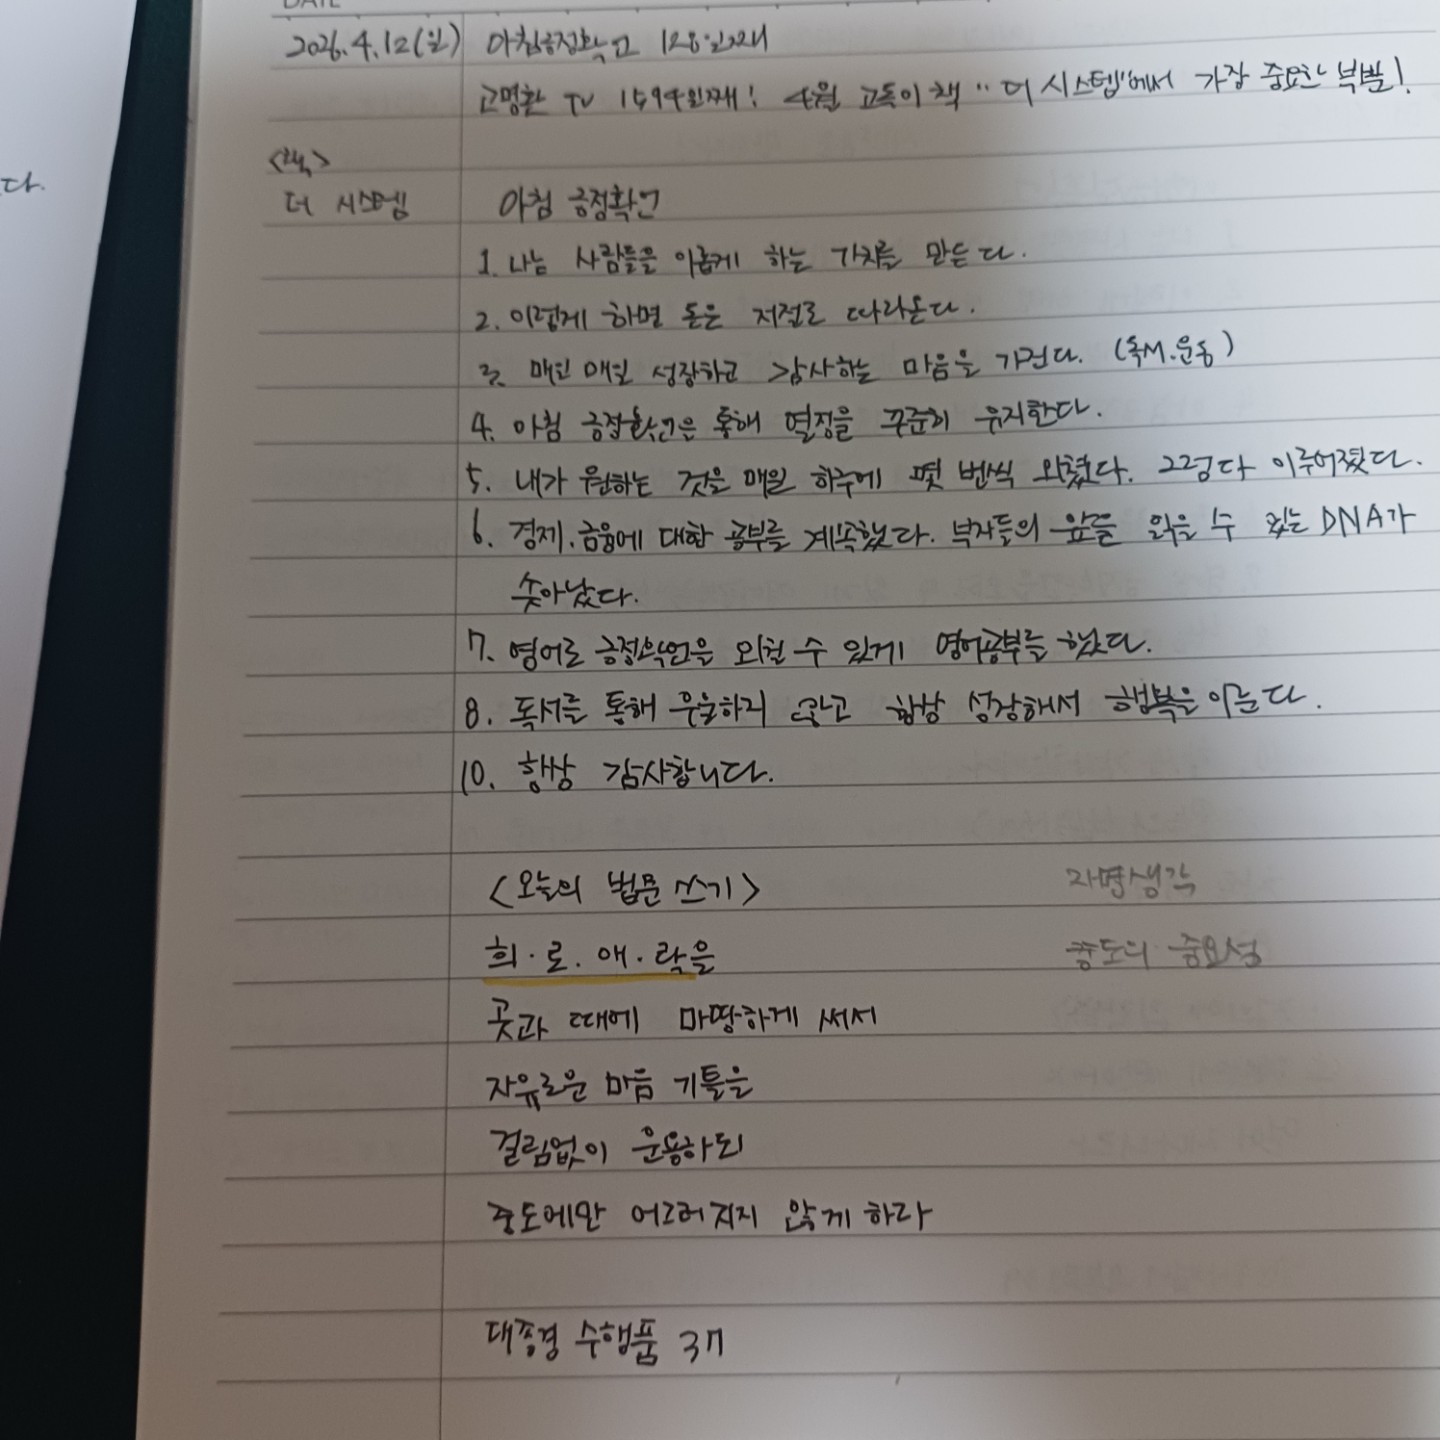 DATE
2026.4.12(일) 아침긍정확언 128일째
고명환 TV 1594일째! 4월 고독이 책 "더 시스템"에서 가장 중요한 부분!
<책>
다.
더 시스템 아침 긍정확언
1. 나는 사람들을 이롭게 하는 가치를 만든다.
2. 이렇게 하면 돈은 저절로 따라온다.
3. 매일 매일 성장하고 감사하는 마음을 가진다. (독서.운동)
4. 아침 긍정확언은 통해 열정을 꾸준히 유지한다.
5. 내가 원하는 것을 매일 하루에 몇 번씩 외쳤다. 그렇다 이루어졌다.
6. 경제.금융에 대한 공부를 계속했다. 부자들의 을 수 있는 DNA가
솟아났다.
7. 영어로 긍정확언을 외칠 수 있게 영어공부를 했다.
8. 독서를 통해 우울하지 않고 항상 성장해서 행복을 이룬다.
10. 항상 감사합니다.
<오늘의 법문 쓰기> 자명생각
희.로.애.락을 중도의 중요성
곳과 때에 마땅하게 써서
자유로운 마음 기틀을
걸림없이 운용하되
중도에만 어그러지지 않게 하라
대종경 수행품 37